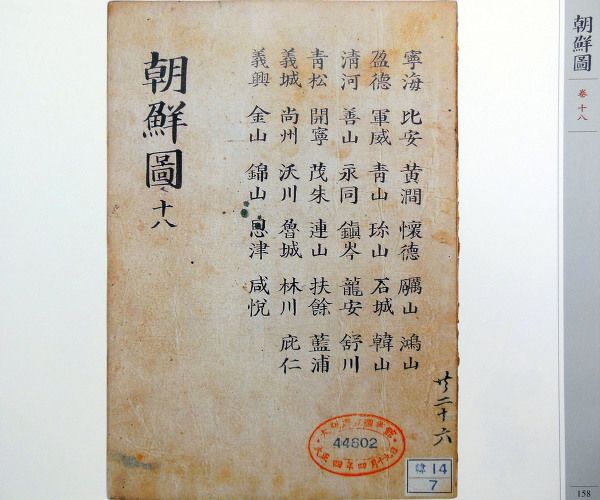 朝鮮圖
卷十八
寧海 比安 黄澗 懷德 礪山 鴻山
盈德 軍威 青山 珎山 石城 韓山
清河 善山 永同 鎭岑 龍安 舒川
青松 開寧 茂朱 連山 扶餘 藍浦
義城 尚州 沃川 魯城 林川 庇仁
義興 金山 錦山 恩津 咸悅
朝鮮圖 十八
共二十六
44602
韓14
7
158